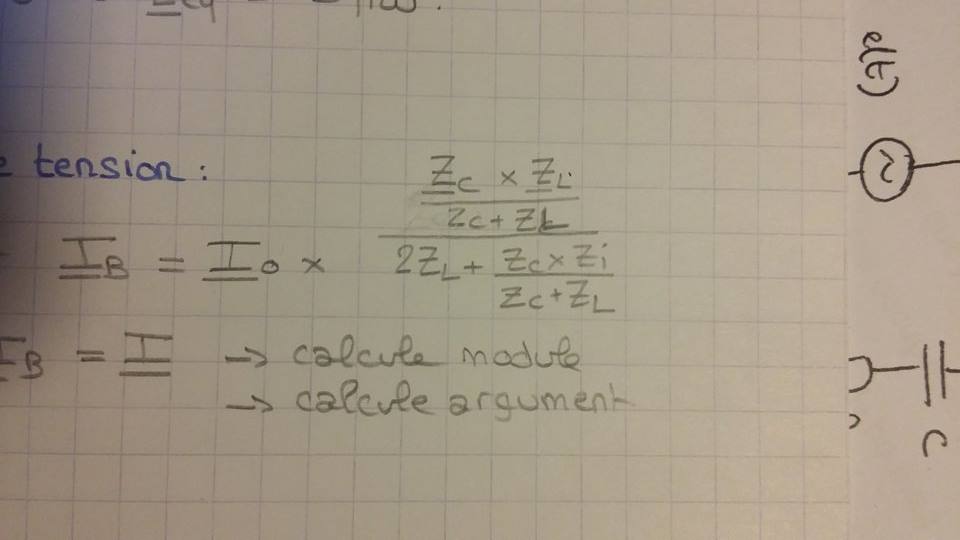 e tension :
Z_C × Z_L
Z_C + Z_L
I_B = I_0 ×
2Z_L + Z_C × Z_i
Z_C + Z_L
I_B = I → calcule module
→ calcule argument
e(t)
~
C